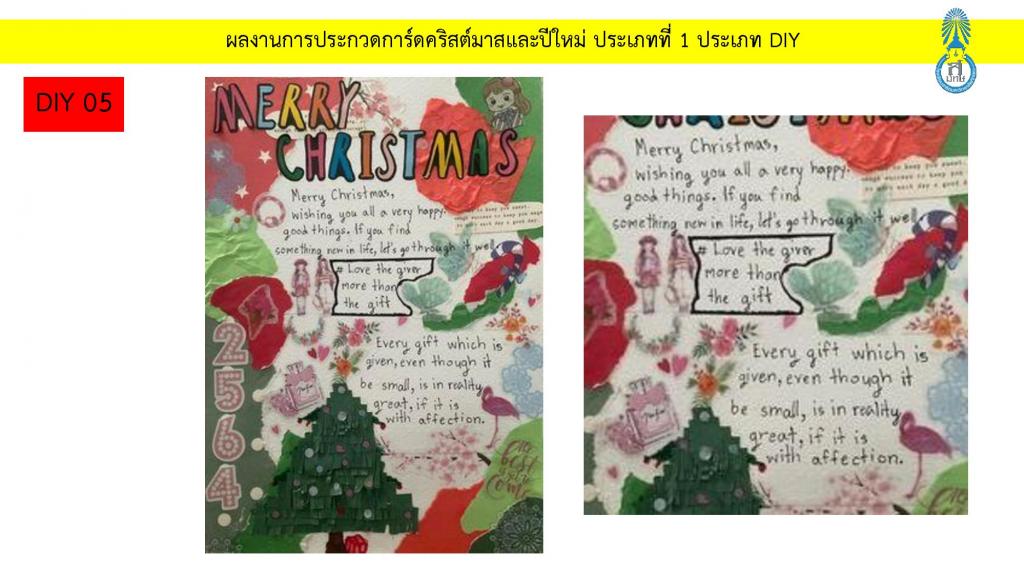 ผลงานการประกวดการ์ดคริสต์มาสและปีใหม่ ประเภทที่ 1 ประเภท DIY
DIY 05
MERRY
CHRISTMAS
Merry Christmas,
wishing you all a very happy.
good things. If you find
something new in life, let's go through it well
# Love the giver
more than
the gift
2564
Every gift which is
given, even though it
be small, is in reality
great, if it is
with affection.
the
best
is yet
to
come
Merry Christmas,
wishing you all a very happy.
good things. If you find
something new in life, let's go through it well
# Love the giver
more than
the gift
Every gift which is
given, even though it
be small, is in reality
great, if it is
with affection.